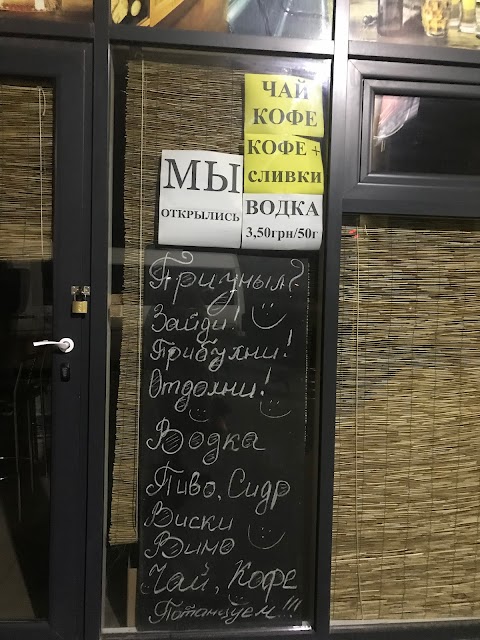 ЧАЙ
КОФЕ
КОФЕ +
сливки
МЫ
ОТКРЫЛИСЬ
ВОДКА
3,50грн/50г
Приуныл?
Зайди!
Прибухни!
Отдохни!
Водка
Пиво, Сидр
Виски
Вино
Чай, Кофе
Потанцуем!!!